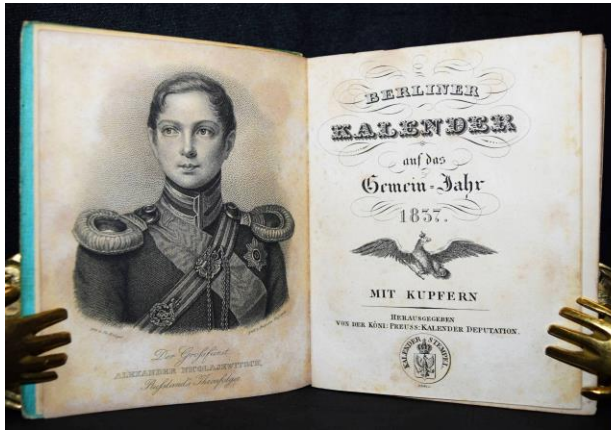 Der Großfürst
ALEXANDER NICOLAJEWITSCH,
Rußlands Thronfolger
BERLINER
KALENDER
auf das
Gemein-Jahr
1837.
MIT KUPFERN
HERAUSGEGEBEN
VON DER KÖNI: PREUSS: KALENDER DEPUTATION.
KALENDER STEMPEL